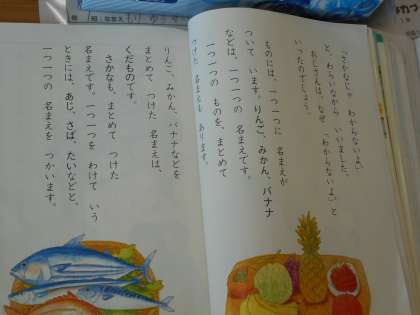 「さかなじゃ わからないよ。」
と、わらいながら いいました。
おじさんは、なぜ、「わからないよ。」と
いったのでしょう。
ものには、一つ一つに 名まえが
ついて います。りんご、みかん、バナナ
などは、一つ一つの 名まえです。
一つ一つの ものを、まとめて
つけた 名まえも あります。
りんご、みかん、バナナなどを
まとめて つけた 名まえは、
くだものです。
さかなも、まとめて つけた
名まえです。一つ一つを わけて いう
ときには、あじ、さば、たいなどと、
一つ一つの 名まえを つかいます。